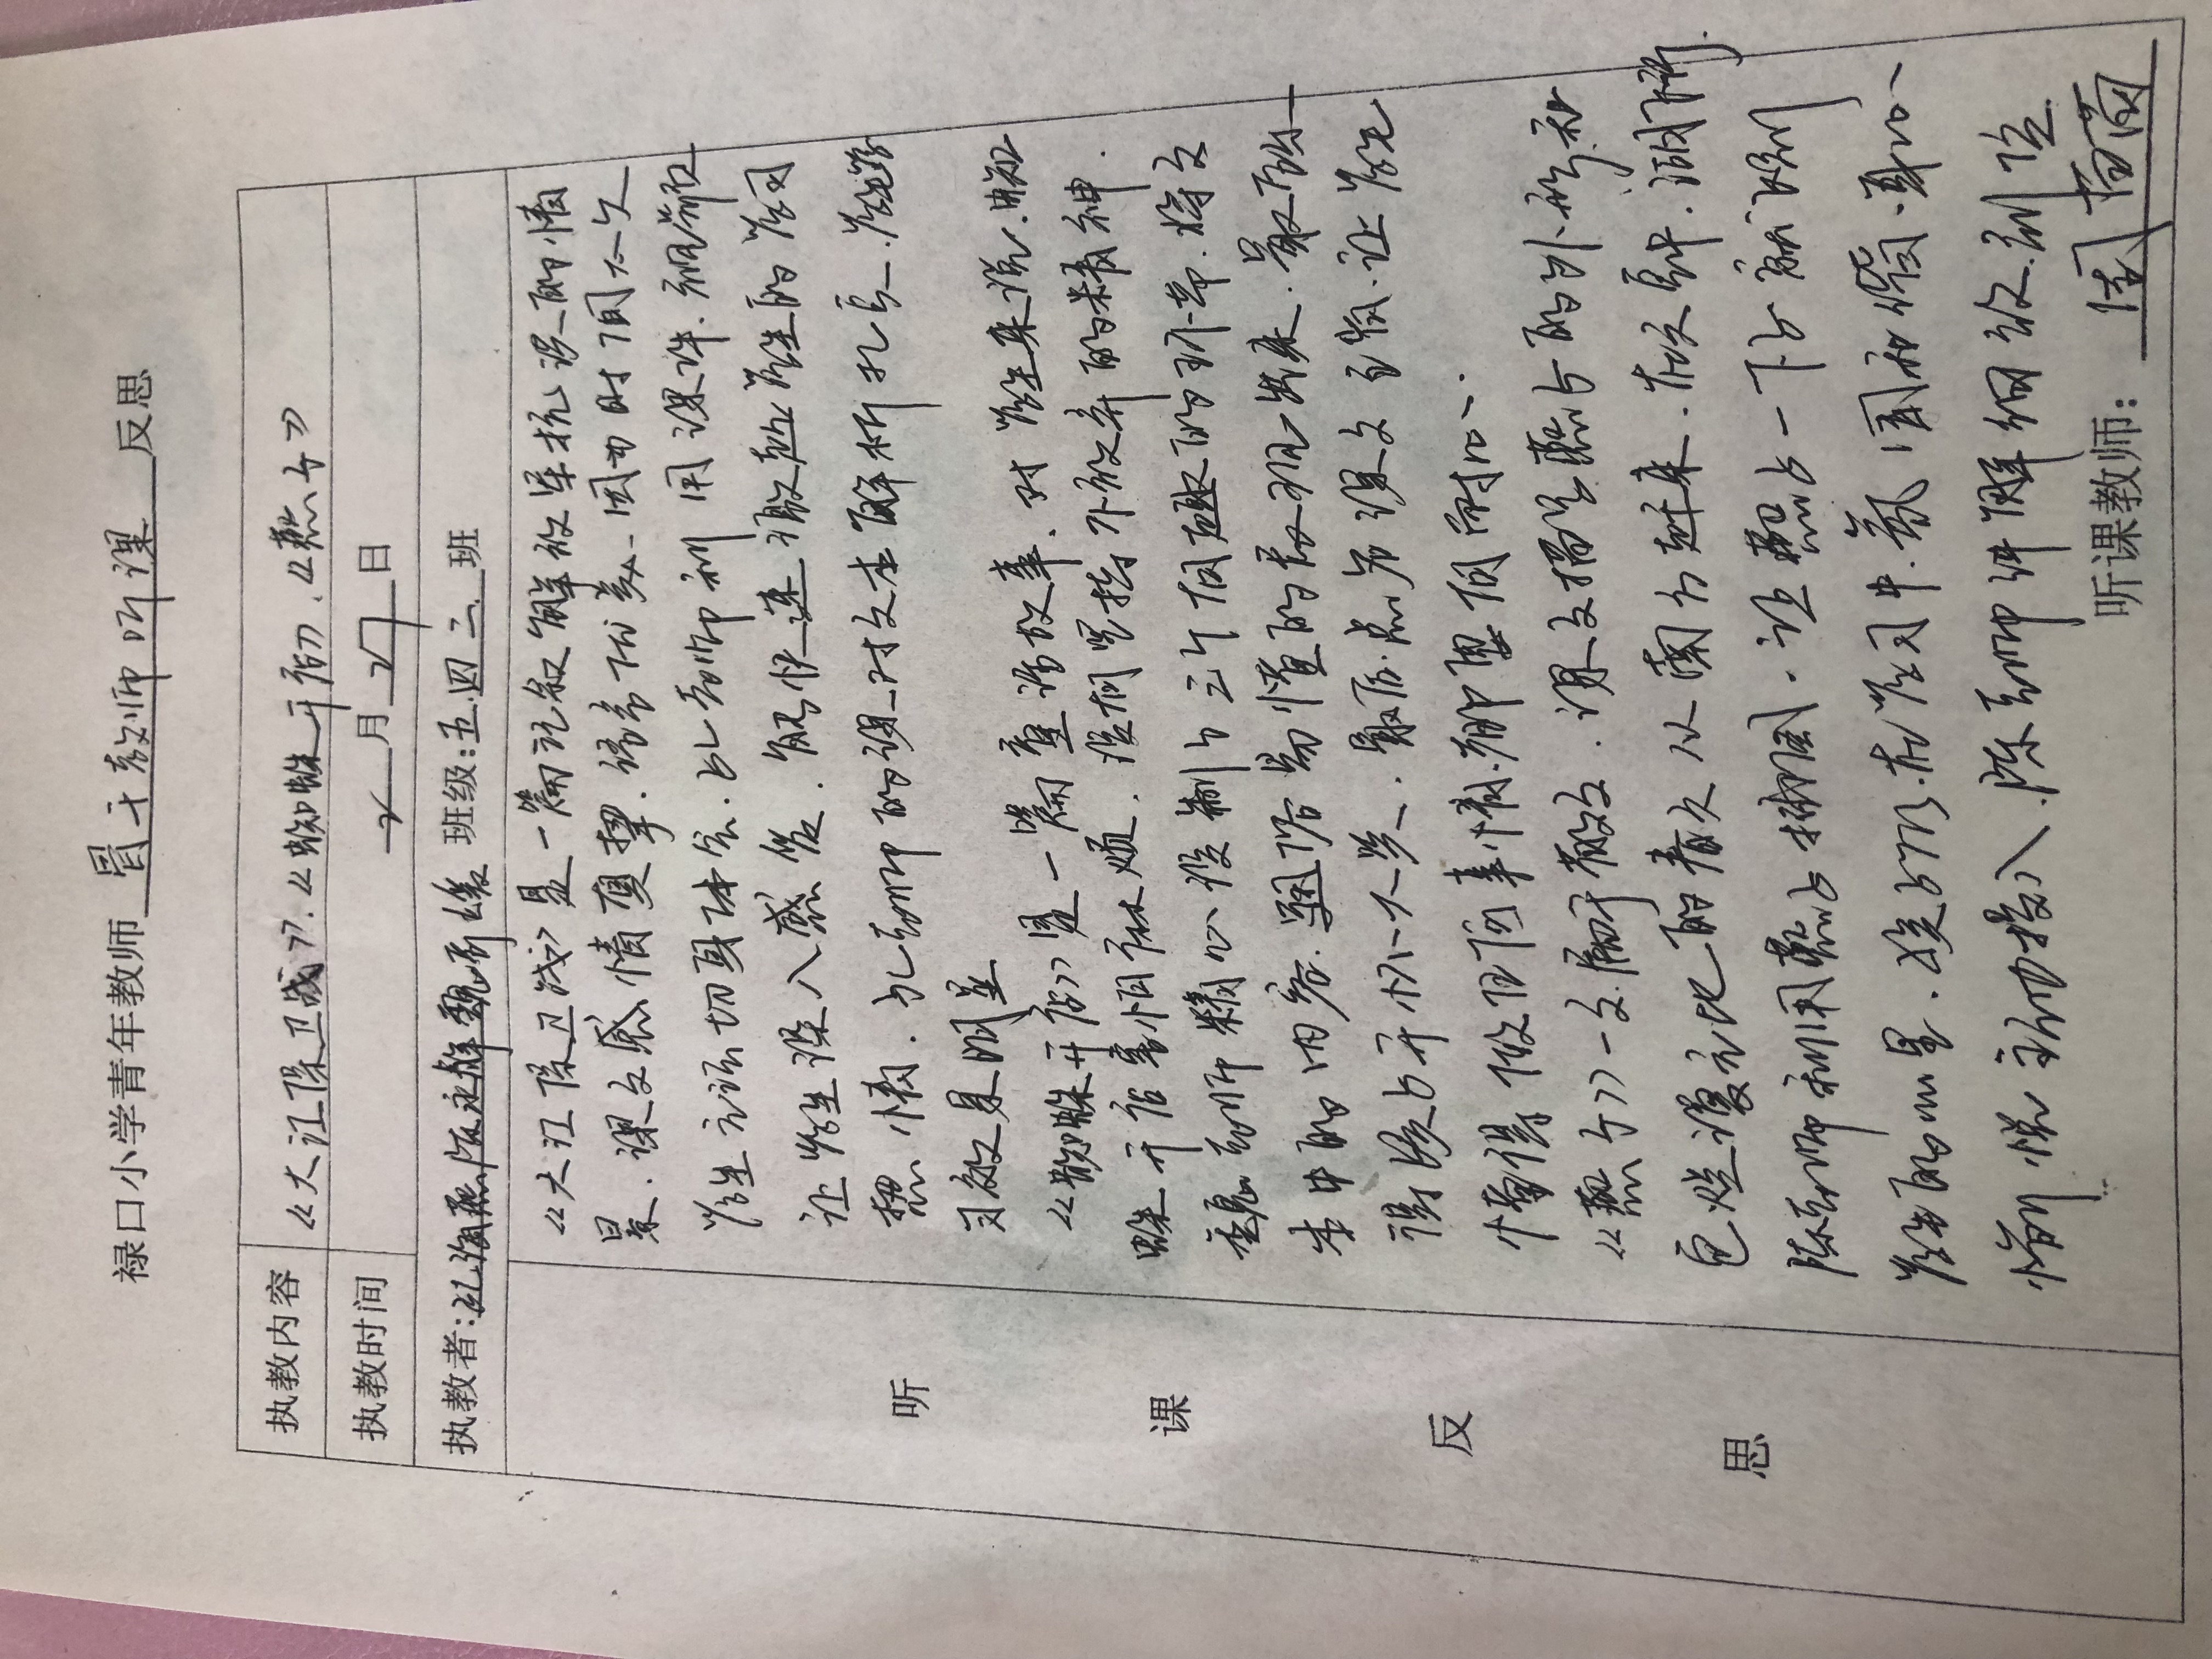 禄口小学青年教师 骨干教师听课 反思
执教内容 《大江保卫战》.《蜘蛛开店》.《燕子》
执教时间 2 月 27 日
执教者: 孔海燕 陈永辉 魏 媛 班级: 五.四 二. 班
听课反思
《大江保卫战》是一篇记叙解放军抗洪的情
景.课文感情真挚.语言优美.因为时间太久
学生无法切身体会.孔老师利用课件.视频
让学生深入感受.能快速激起学生的学习
热情.孔老师的课对文本解析扎实.学生学
习效果明显
《蜘蛛开店》是一篇童话故事.对学生来说.蜘
蛛开店害怕麻烦.没有坚持不放弃的精神.
魏老师精心设制了三个有趣的环节.将文
本中的内容.通俗易懂的展现出来.最后
得孩子开怀大笑.最后点名课文主旨.让学生
懂得做任何事情.都要有耐心.
《燕子》一文.属于散文.课文描写燕子的外形.和
它 烂漫无比的春天从南方赶来.在天空中.湖
陈老师利用燕子插图.让燕子一下子就飞到
学生的心里.孩子们.在学习中.氛围和谐.身心
愉悦 主动投入.陈老师讲解细致.到位.
听课教师: 周